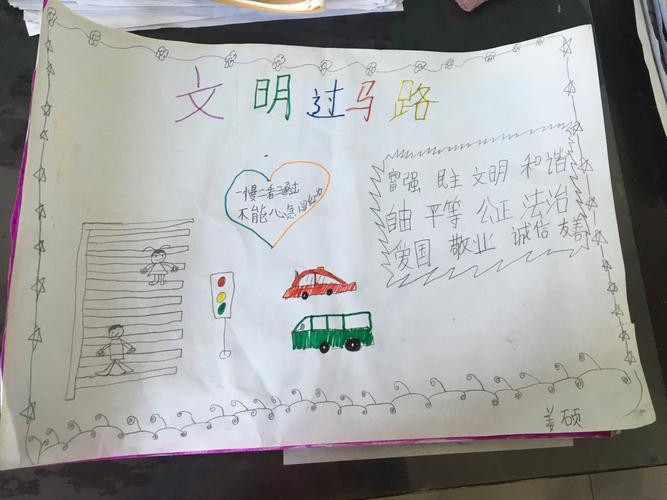 文明过马路
一慢二看三通过
不能心急闯红灯
富强 民主 文明 和谐
自由 平等 公正 法治
爱国 敬业 诚信 友善
姜硕